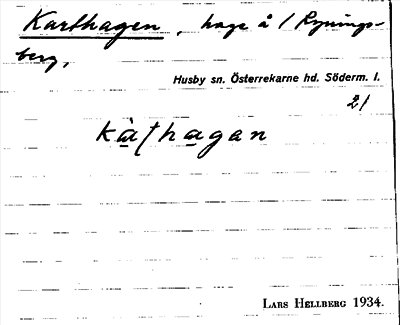 Karthagen, hage å 1 Rynings-
berg,
Husby sn. Österrekarne hd. Söderm. l.
21
kàthagan
LARS HELLBERG 1934.